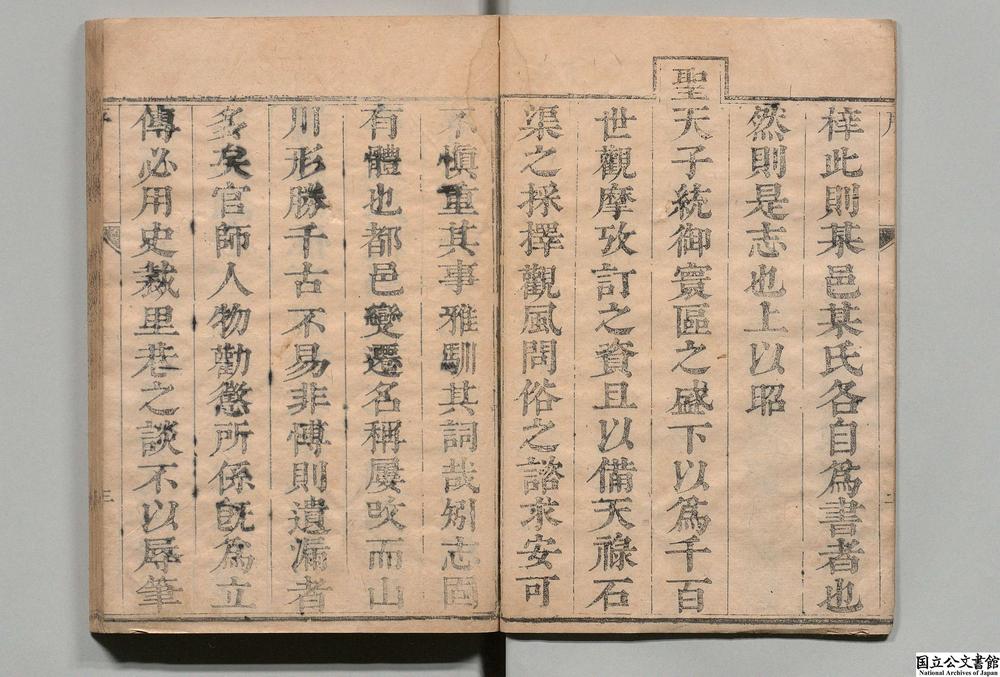 梓此則某邑某氏各自爲書者也
然則是志也上以昭
聖天子統御寰區之盛下以爲千百
世觀摩攷訂之資且以備天祿石
渠之採擇觀風問俗之諮求安可
不慎重其事雅馴其詞哉矧志固
有體也都邑變遷名稱屢改而山
川形勝千古不易非博則遺漏者
多矣官師人物勸懲所係旣爲立
傳必用史裁里巷之談不以辱筆
二
三
国立公文書館
National Archives of Japan